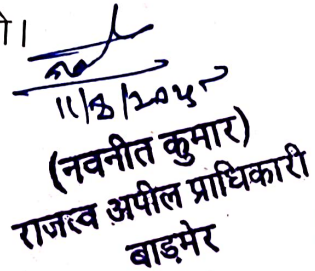 ो।
11/8/2025
(नवनीत कुमार)
राजस्व अपील प्राधिकारी
बाड़मेर